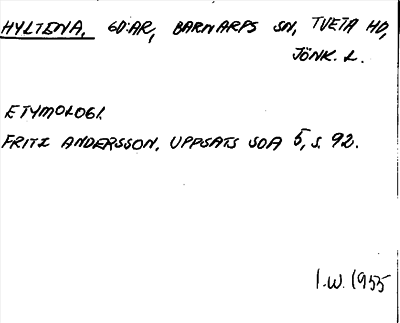 HYLTENA, GDAR, BARNARPS SN, TVETA HD,
JÖNK. L.
ETYMOLOGI.
FRITZ ANDERSSON, UPPSATS SOA 5, s. 92.
I.W. 1955